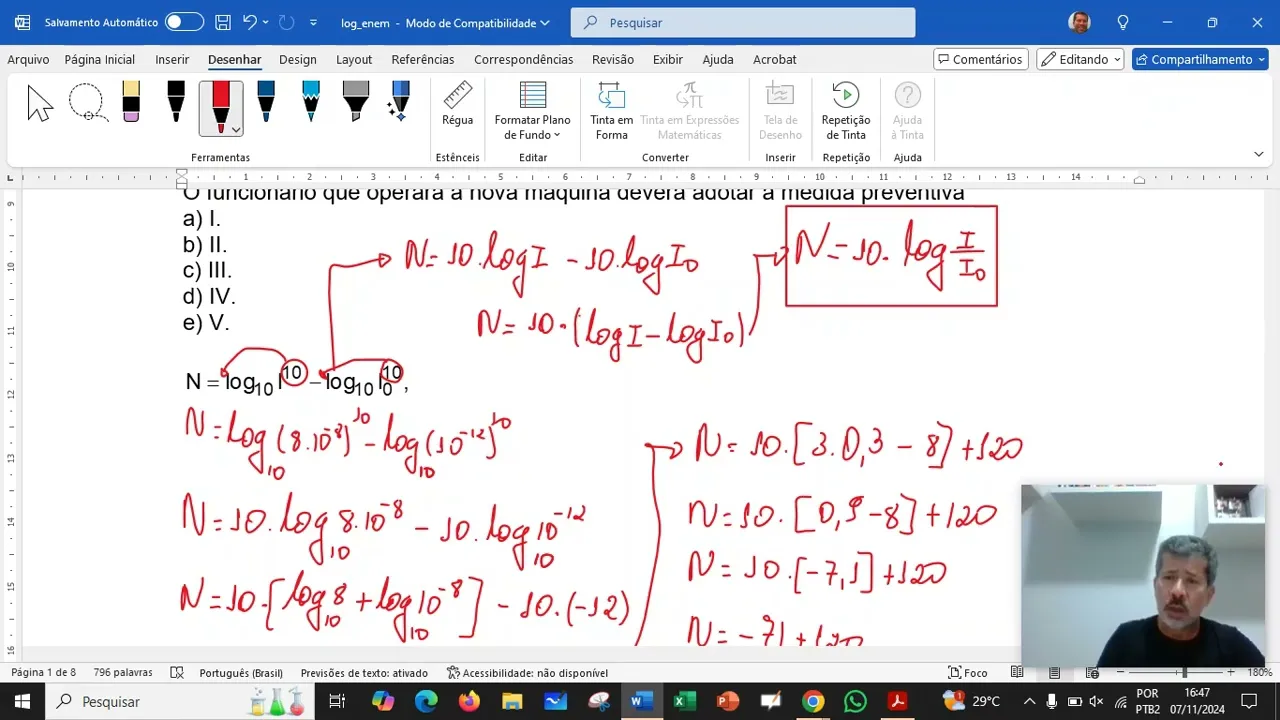 Salvamento Automático
log_enem - Modo de Compatibilidade
Pesquisar
Arquivo Página Inicial Inserir Desenhar Design Layout Referências Correspondências Revisão Exibir Ajuda Acrobat
Comentários Editando Compartilhamento
Régua
Formatar Plano de Fundo
Tinta em Forma
Tinta em Expressões Matemáticas
Tela de Desenho
Repetição de Tinta
Ajuda à Tinta
Ferramentas Estênceis Editar Converter Inserir Repetição Ajuda
1 1 2 3 4 5 6 7 8 9 10 11 12 13 14
O funcionário que operará a nova máquina deverá adotar a medida preventiva
a) I.
b) II.
c) III.
d) IV.
e) V.
N = 10.log I - 10.log I₀
N = 10.(log I - log I₀)
N = 10. log I/I₀
N = log₁₀ I¹⁰ – log₁₀ I₀¹⁰,
N = log₁₀ (8.10⁻⁸)¹⁰ - log₁₀ (10⁻¹²)¹⁰
N = 10.log₁₀ 8.10⁻⁸ - 10.log₁₀ 10⁻¹²
N = 10.[log₁₀ 8 + log₁₀ 10⁻⁸] - 10.(-12)
N = 10.[3.0,3 - 8] + 120
N = 10.[0,9 - 8] + 120
N = 10.[-7,1] + 120
N = -71 + 120
9
10
11
12
13
14
15
16
Página 1 de 8 796 palavras Português (Brasil) Previsões de texto: ativado Acessibilidade: não disponível Foco 180%
Pesquisar
29°C
POR
PTB2
16:47
07/11/2024